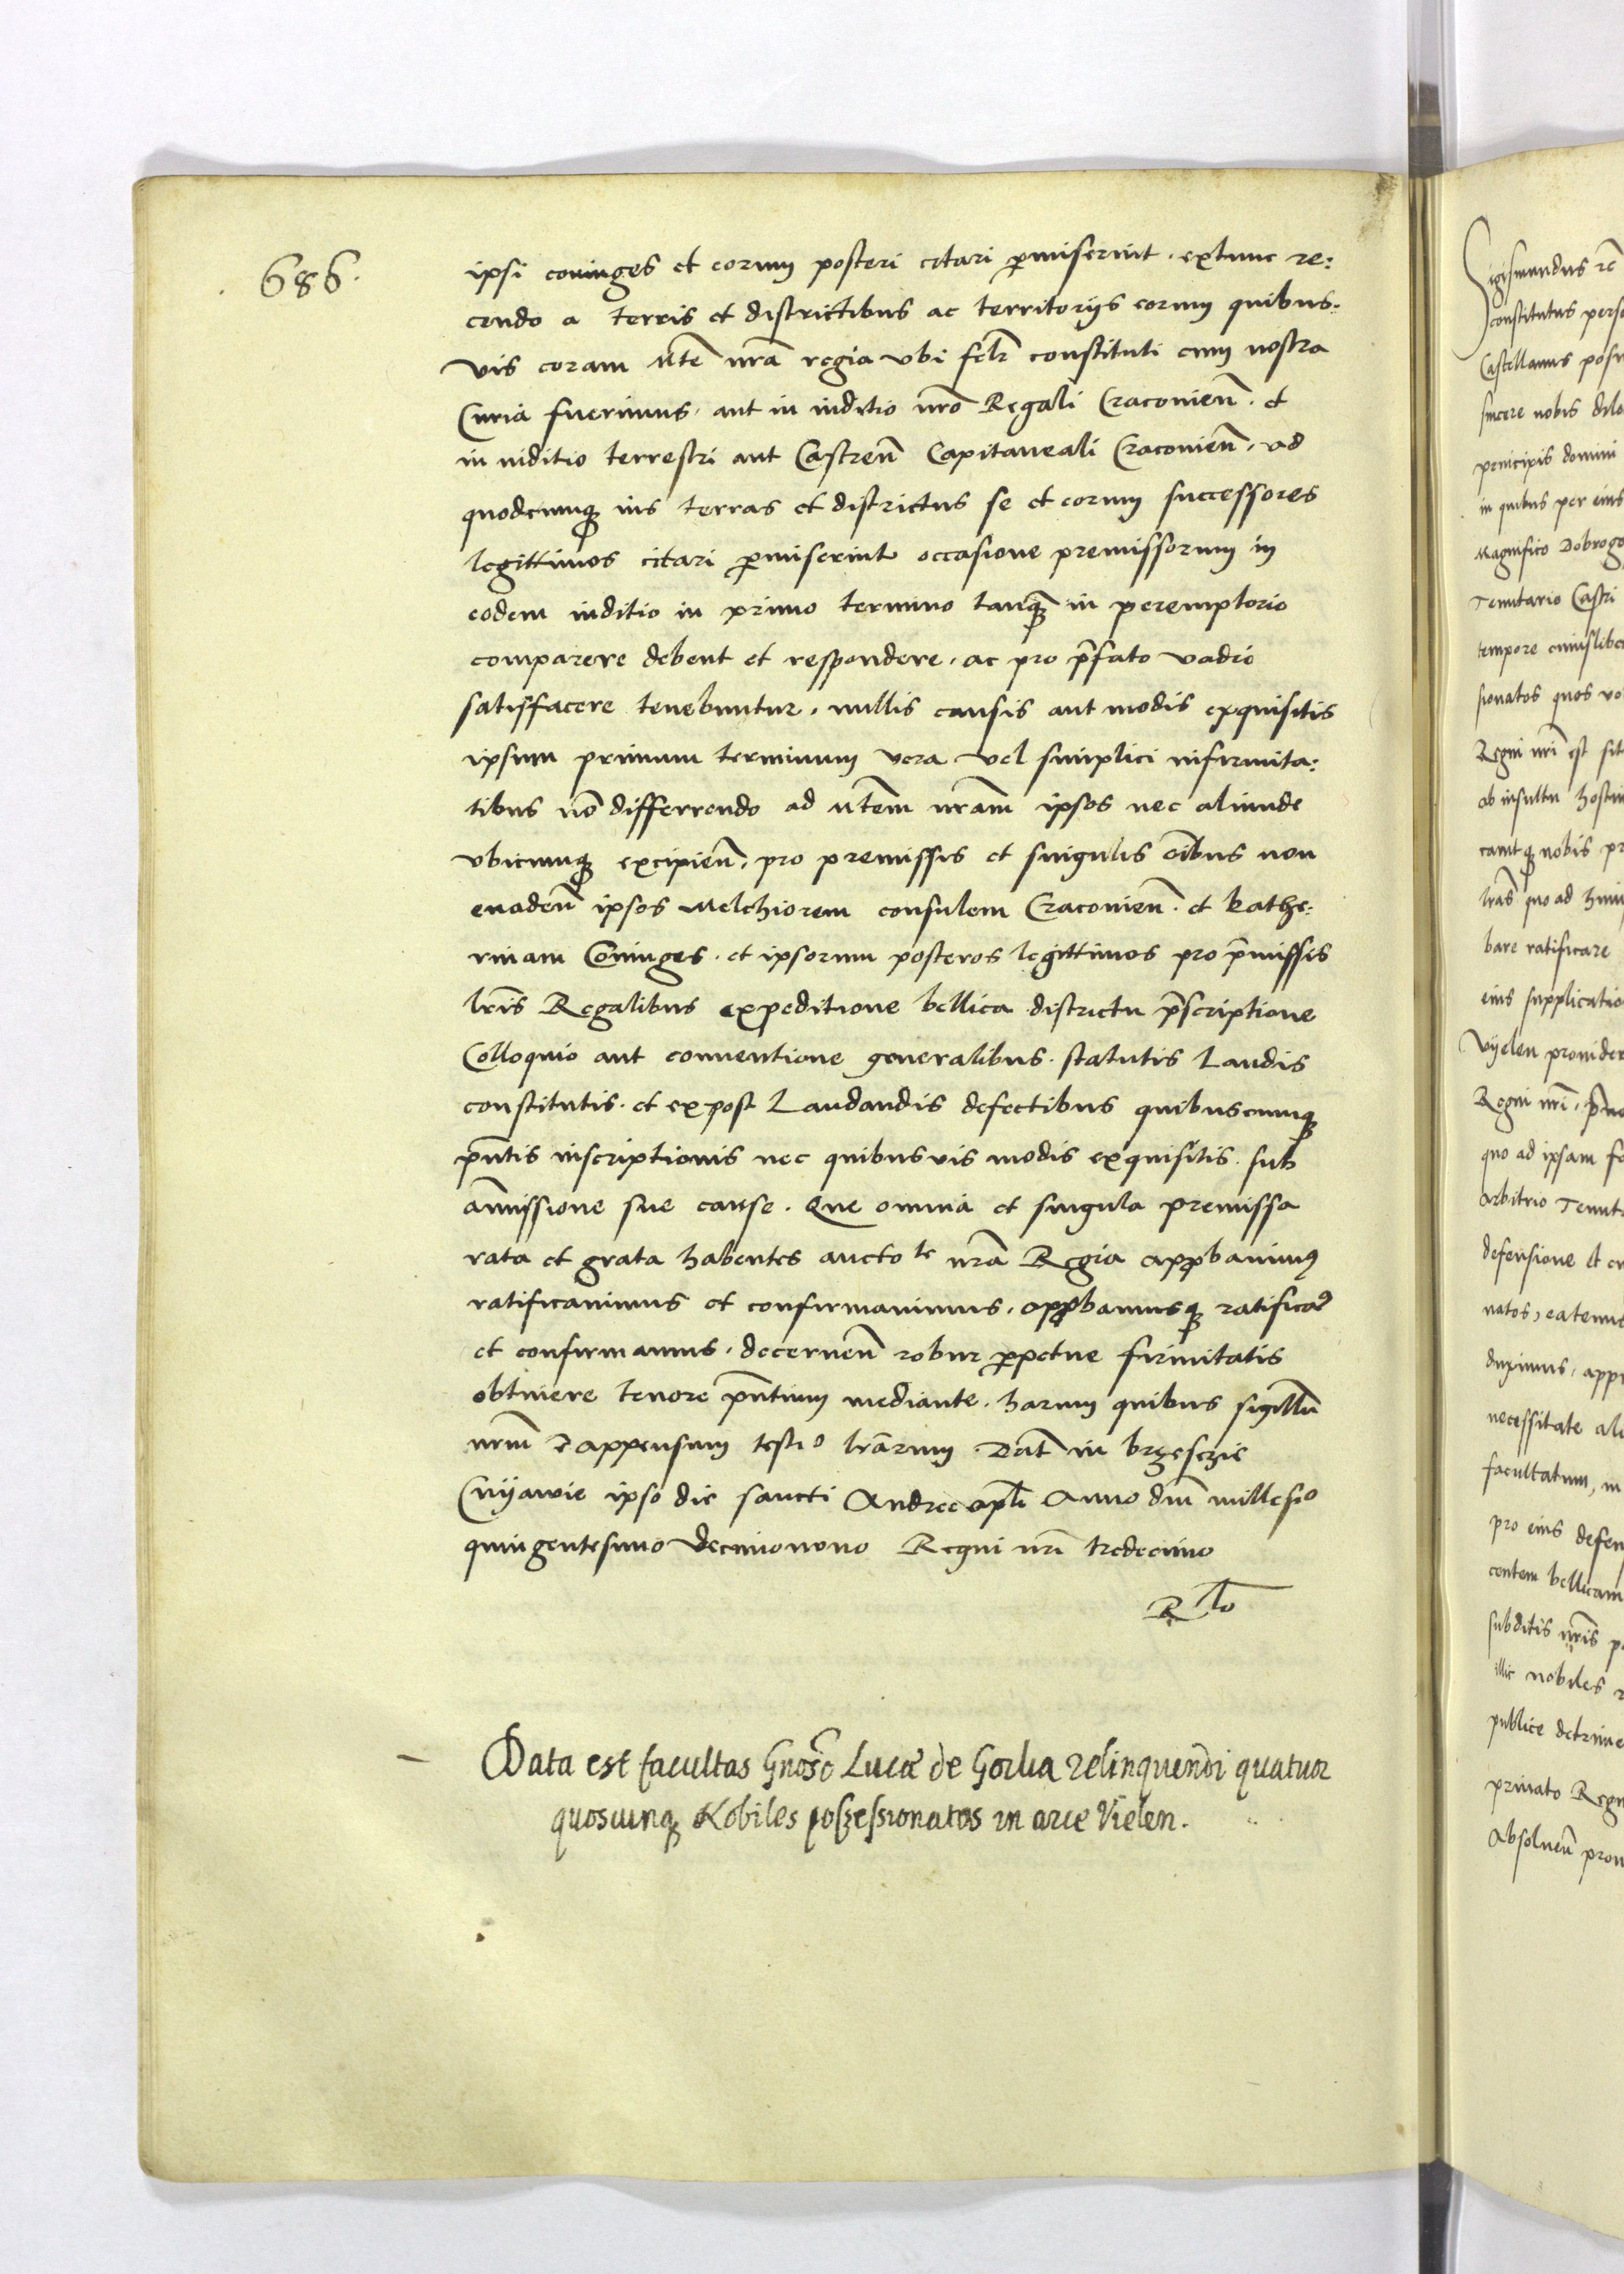 686.
ipsi coniuges et eorum posteri citari p̄miserint. extunc re:
cendo a terris et districtibus ac territorijs eorum quibus:
vis coram Mte nr̄a regia vbi felr̄ constituti cum nostra
Curia fuerimus. aut in iuditio nr̄o Regali Cracovien̄. et
in iuditio terrestri aut Castren̄ Capitaneali Cracovien̄. ad
quodcumq3 ius terras et districtus se et eorum successores
legittimos citari p̄miserint occasione premissorum in
eodem iuditio in primo termino tanq3 in peremptorio
comparere debent et respondere. ac pro p̄fato vadio
satisfacere tenebuntur. nullis causis aut modis exquisitis
ipsum primum terminum vera vel simplici infirmita:
tibus nō differrendo ad Mtem nr̄am ipsos nec aliunde
vbicumq3 excipien̄. pro premissis et singulis oībus non
evaden̄ ipsos Melchiorem consulem Cracovien̄. et Kathe:
rinam Coniuges. et ipsorum posteros legittimos pro p̄missis
lr̄is Regalibus expeditione bellica districtu p̄scriptione
Colloquio aut conventione generalibus. statutis Laudis
constitutis. et expost Laudandis defectibus quibuscumq3
pn̄tis inscriptionis nec quibusvis modis exquisitis. sub
am̄issione sue cause. Que omnia et singula premissa
rata et grata habentes aucto te nr̄a Regia app̄bavimus
ratificavimus et confirmavimus. app̄bamusq3 ratifica9
et confirmamus. decernen̄ robur p̄petue firmitatis
obtinere tenore pn̄tium mediante. harum quibus sigillū
nr̄m ē appensum testio lr̄arum. Dat̄ in brzesczie
Cuyavie ipso die sancti Andree apl̄i Anno dn̄i millesio
quingentesimo decimonono Regni nr̄i tredecimo
R to
Data est facultas Gnoso Lucæ de Gorka relinquendi quatuor
quoscunq3 Nobiles possessionatos in arce Vielen.
Sigismundus
constitutus
Castellanus
sincere nobis
principis domini
in quibus per eius
Magnifico
Tenutario Castri
tempore
sionatos quos
Regni nr̄i est
ab insultu
nobis
lr̄as quo ad
bare ratificare
eius
Vyelen
Regni nr̄i.
quo ad ipsam
arbitrio
defensione et
natos, eatenus
duximus,
necessitate
facultatum, in
pro eius
bellicam
subditis nr̄is
illic nobiles
publice
privato
Absoluen̄